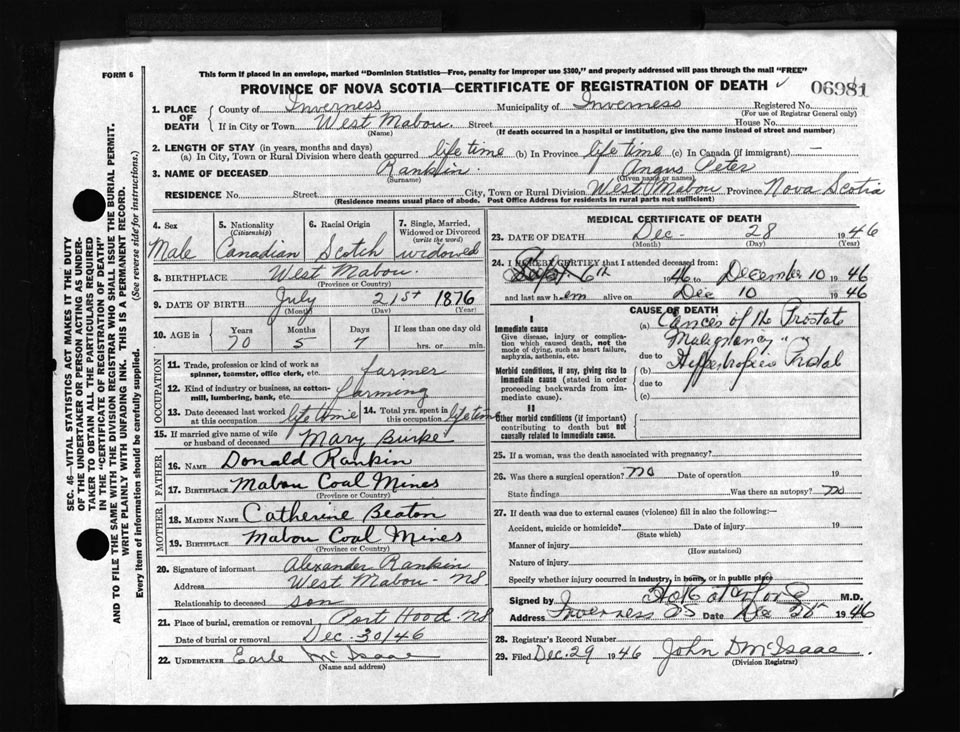 This form if placed in an envelope, marked "Dominion Statistics—Free, penalty for improper use $300," and properly addressed will pass through the mail "FREE"
FORM 6
PROVINCE OF NOVA SCOTIA—CERTIFICATE OF REGISTRATION OF DEATH
06981
1. PLACE OF DEATH
County of Inverness Municipality of Inverness Registered No.
(For use of Registrar General only)
If in City or Town West Mabou. Street House No.
(Name) (If death occurred in a hospital or institution, give the name instead of street and number)
2. LENGTH OF STAY (in years, months and days)
(a) In City, Town or Rural Division where death occurred life time (b) In Province life time (c) In Canada (if immigrant) —
3. NAME OF DECEASED Rankin. Angus Peter
(Surname) (Given name or names)
RESIDENCE No. Street City, Town or Rural Division West Mabou Province Nova Scotia
(Residence means usual place of abode. Post Office Address for residents in rural parts not sufficient)
SEC. 46—VITAL STATISTICS ACT MAKES IT THE DUTY
OF THE UNDERTAKER OR PERSON ACTING AS UNDER-
TAKER TO OBTAIN ALL THE PARTICULARS REQUIRED
IN THE "CERTIFICATE OF REGISTRATION OF DEATH"
AND TO FILE THE SAME WITH THE DIVISION REGISTRAR WHO SHALL ISSUE THE BURIAL PERMIT.
WRITE PLAINLY WITH UNFADING INK. THIS IS A PERMANENT RECORD.
Every item of information should be carefully supplied. (See reverse side for instructions.)
4. Sex Male
5. Nationality (Citizenship) Canadian
6. Racial Origin Scotch
7. Single, Married, Widowed or Divorced (write the word) widowed
8. BIRTHPLACE West Mabou.
(Province or Country)
9. DATE OF BIRTH July 21st 1876
(Month) (Day) (Year)
10. AGE in Years 70 Months 5 Days 7 If less than one day old hrs. or min.
OCCUPATION
11. Trade, profession or kind of work as spinner, teamster, office clerk, etc. farmer
12. Kind of industry or business, as cotton-mill, lumbering, bank, etc. farming
13. Date deceased last worked at this occupation life time
14. Total yrs. spent in this occupation life time
15. If married give name of wife or husband of deceased Mary Burke
FATHER
16. NAME Donald Rankin
17. BIRTHPLACE Mabou Coal Mines
(Province or Country)
MOTHER
18. MAIDEN NAME Catherine Beaton
19. BIRTHPLACE Mabou Coal Mines
(Province or Country)
20. Signature of informant Alexander Rankin
Address West Mabou - NS
Relationship to deceased son
21. Place of burial, cremation or removal Port Hood. NS
Date of burial or removal Dec. 30/46
22. UNDERTAKER Earle McIsaac
(Name and address)
MEDICAL CERTIFICATE OF DEATH
23. DATE OF DEATH Dec- 28 1946
(Month) (Day) (Year)
24. I HEREBY CERTIFY that I attended deceased from:
6th 1946 to December 10 1946
and last saw him alive on Dec 10 1946
CAUSE OF DEATH
I
Immediate cause
Give disease, injury or complication which caused death, not the mode of dying, such as heart failure, asphyxia, asthenia, etc.
(a) Cancer of the Prostate
Malignancy " "
due to
Morbid conditions, if any, giving rise to immediate cause (stated in order proceeding backwards from immediate cause).
(b)
due to
(c)
II
Other morbid conditions (if important) contributing to death but not causally related to immediate cause.
25. If a woman, was the death associated with pregnancy?
26. Was there a surgical operation? no Date of operation 19
State findings Was there an autopsy? no
27. If death was due to external causes (violence) fill in also the following:—
Accident, suicide or homicide? Date of injury 19
(State which)
Manner of injury
(How sustained)
Nature of injury
Specify whether injury occurred in industry, in home, or in public place
Signed by M.D.
Address Inverness NS Date Dec 1946
28. Registrar's Record Number
29. Filed Dec. 29 1946 John D McIsaac.
(Division Registrar)